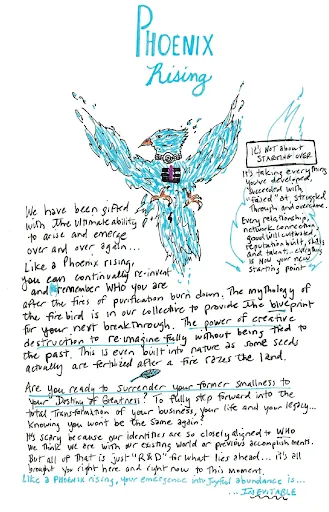 PHOENIX
Rising
IT'S NOT ABOUT
STARTING OVER
It's taking everything
you've developed,
succeeded with
"failed" at, struggled
through and overcome.
Every relationship,
network connection,
goodwill cultivated,
reputation built, skills
and talent... everything
is Now your new
starting point
We have been gifted
with the ultimate ability
to arise and emerge
over and over again...
Like a Phoenix rising,
you can continually re-invent
and remember WHO you are
after the fires of purification burn down. The mythology of
the firebird is in our collective to provide the blueprint
for your next breakthrough. The power of creative
destruction to re-imagine fully without being tied to
the past. This is even built into nature as some seeds
actually are fertilized after a fire razes the land.
Are you ready to surrender your former smallness to
your Destiny of Greatness? To fully step forward into the
total transformation of your business, your life and your legacy...
Knowing you won't be the same again?
It's scary because our identities are so closely aligned to WHO
we think we are with our existing world or previous accomplishments.
But all of that is just "R&D" for what lies ahead... it's all
brought you right here and right now to this moment.
Like a PHOENIX rising, your emergence into joyful abundance is...
...INEVITABLE